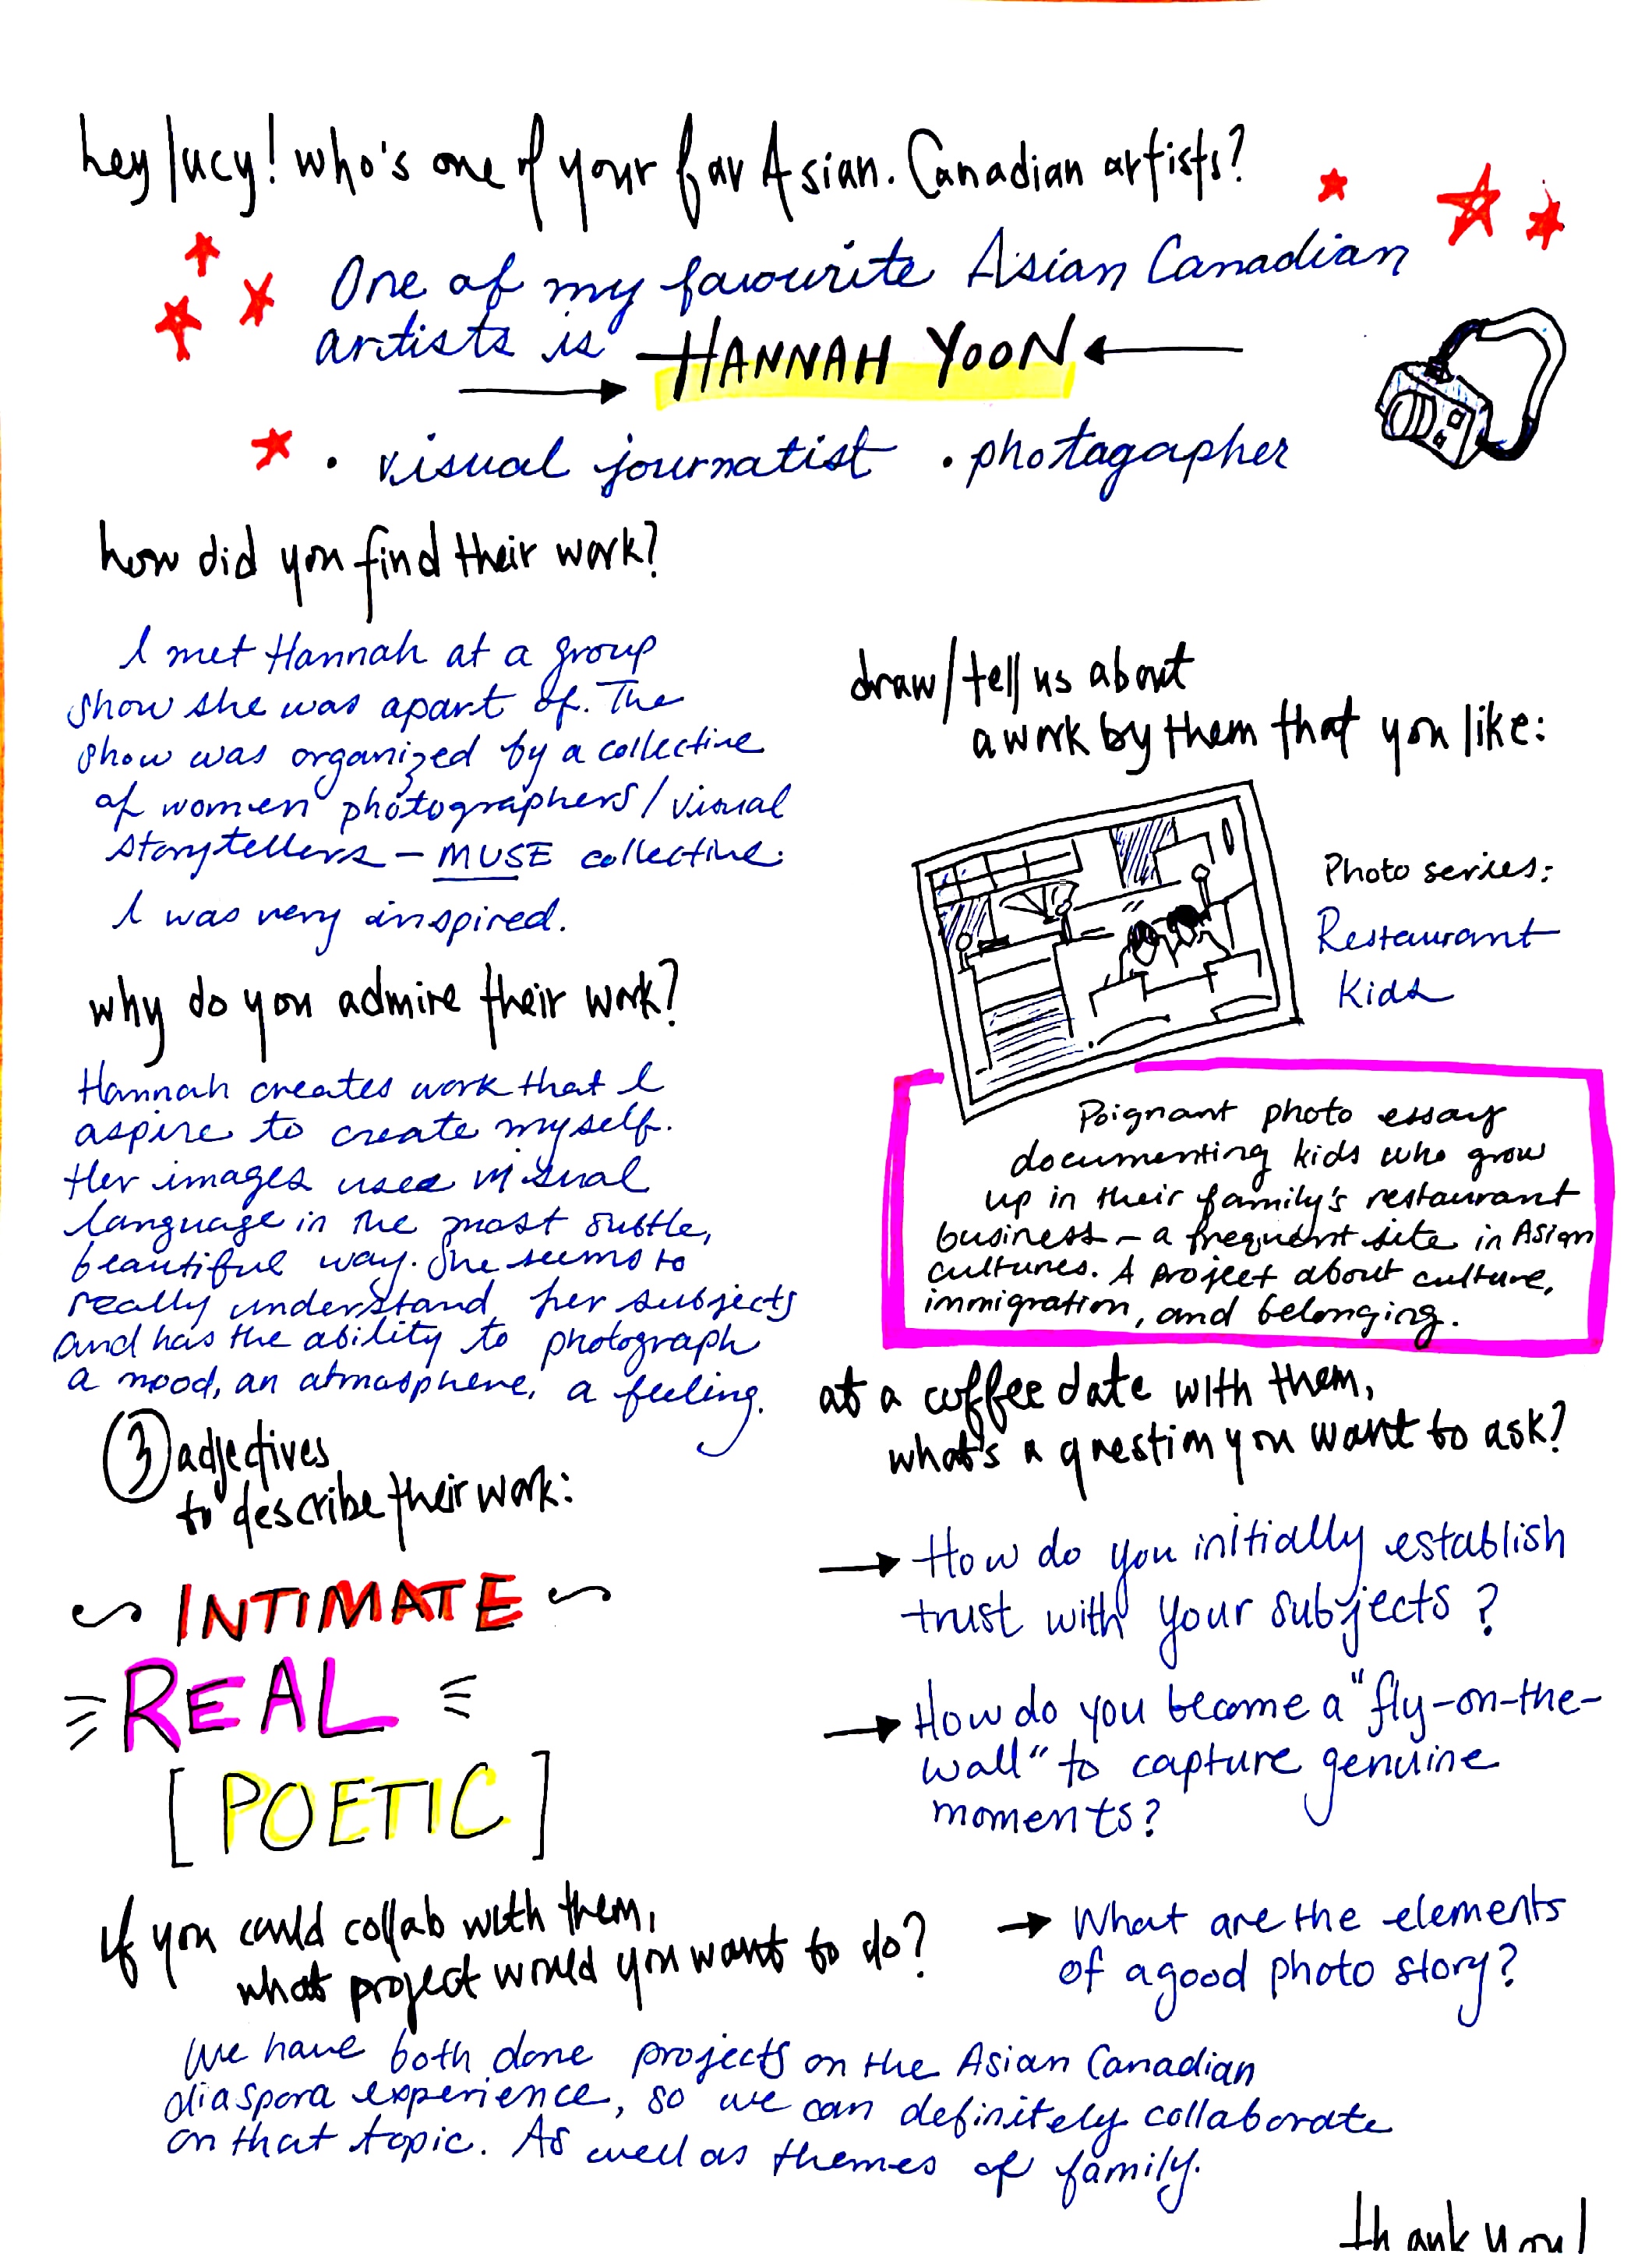 hey lucy! who's one of your fav Asian. Canadian artists?
One of my favourite Asian Canadian
artists is HANNAH YOON
• visual journatist • photagapher
how did you find their work?
I met Hannah at a group
show she was apart of. The
show was organized by a collective
of women photographers/visual
storytellers – MUSE collective.
I was very inspired.
why do you admire their work?
Hannah creates work that I
aspire to create myself.
Her images used visual
language in the most subtle,
beautiful way. She seems to
really understand her subjects
and has the ability to photograph
a mood, an atmosphere, a feeling.
3 adjectives
to describe their work:
INTIMATE
REAL
[POETIC]
draw/tell us about
a work by them that you like:
Photo series:
Restaurant
Kids
Poignant photo essay
documenting kids who grow
up in their family's restaurant
business – a frequent site in Asian
cultures. A project about culture,
immigration, and belonging.
at a coffee date with them,
what's a question you want to ask?
→ How do you initially establish
trust with your subjects?
→ How do you become a "fly-on-the-
wall" to capture genuine
moments?
→ What are the elements
of a good photo story?
if you could collab with them,
what project would you want to do?
We have both done projects on the Asian Canadian
diaspora experience, so we can definitely collaborate
on that topic. As well as themes of family.
thank you!